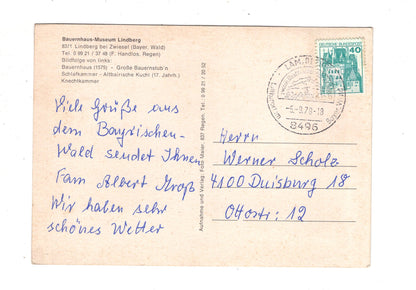 Bauernhaus-Museum Lindberg
8371 Lindberg bei Zwiesel (Bayer. Wald)
Tel. 0 99 21 / 37 48 (F. Handlos, Regen)
Bildfolge von links:
Bauernhaus (1575) - Große Bauernstub'n
Schlafkammer - Altbairische Kuchl (17. Jahrh.)
Knechtkammer
Viele Grüße aus
dem Bayrischen-
Wald sendet Ihnen
Fam Albert Groß
Wir haben sehr
schönes Wetter
Aufnahme und Verlag: Foto Maier 837 Regen, Tel. 0 99 21 / 20 52
40
8496
Herrn
Werner Scholz
4100 Duisburg 18
Ottostr: 12